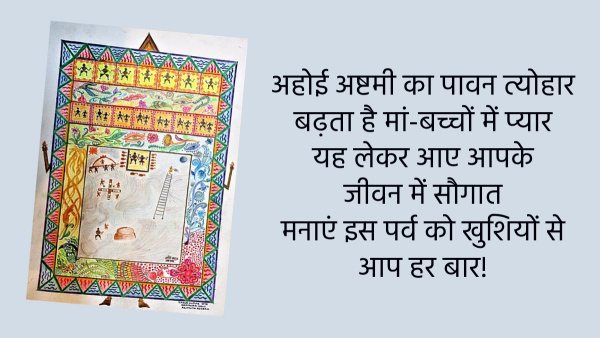 अहोई अष्टमी का पावन त्योहार
बढ़ता है मां-बच्चों में प्यार
यह लेकर आए आपके
जीवन में सौगात
मनाएं इस पर्व को खुशियों से
आप हर बार!